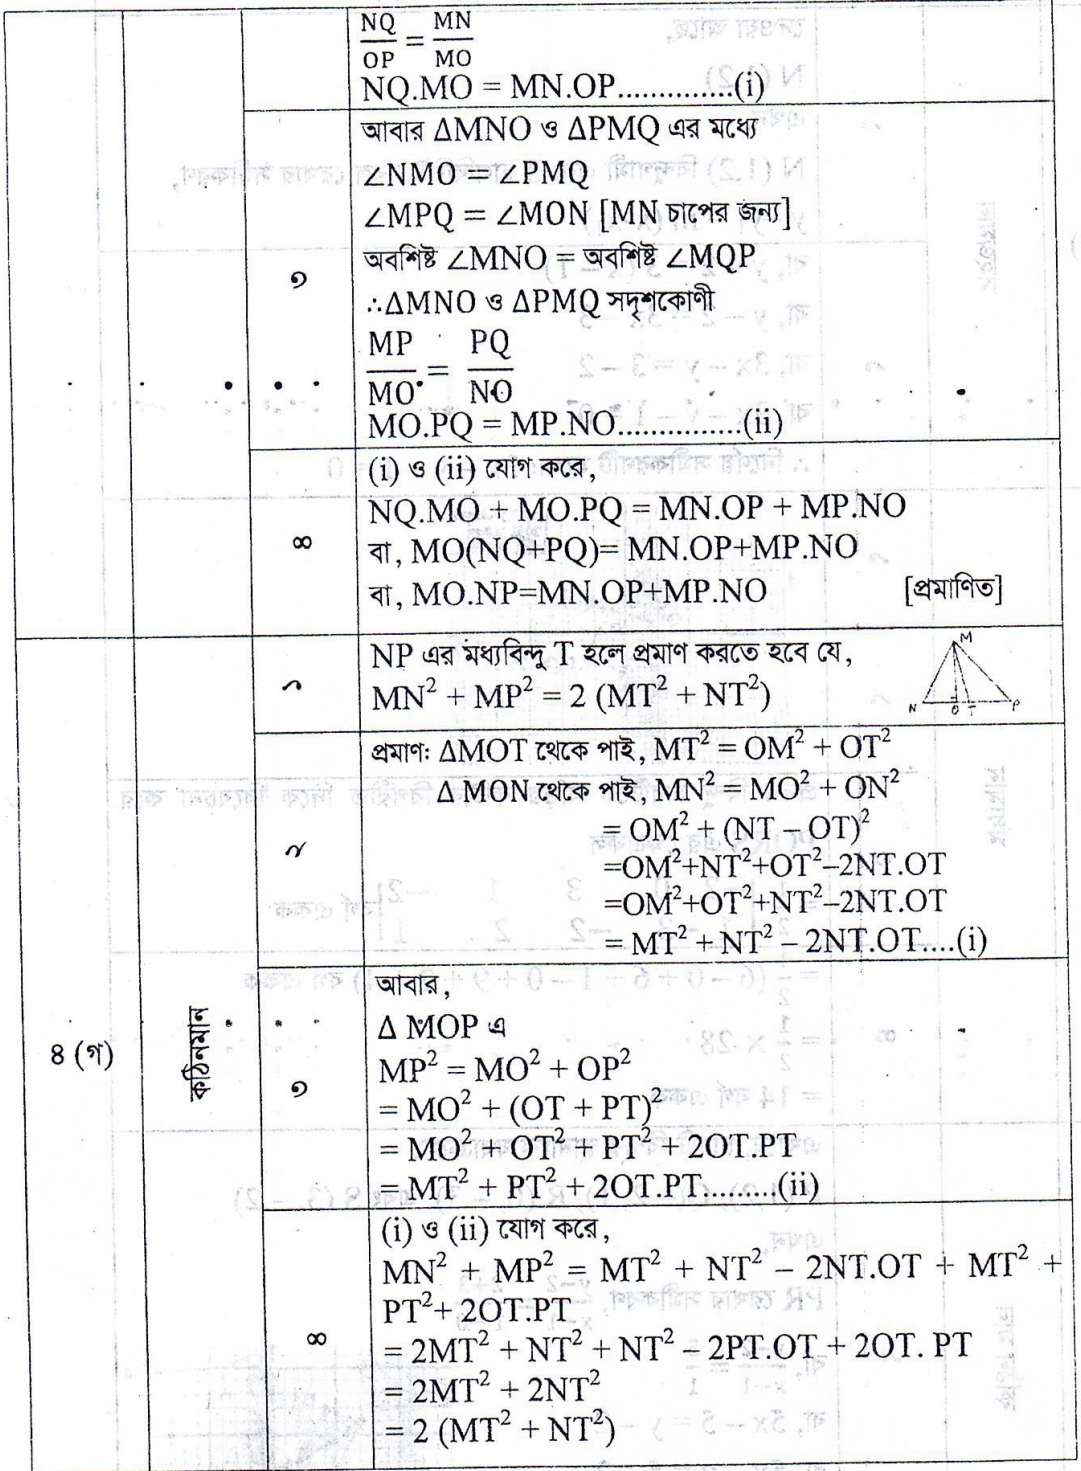 NQ/OP = MN/MO
NQ.MO = MN.OP..............(i)
আবার ΔMNO ও ΔPMQ এর মধ্যে
∠NMO = ∠PMQ
∠MPQ = ∠MON [MN চাপের জন্য]
অবশিষ্ট ∠MNO = অবশিষ্ট ∠MQP
৩
∴ΔMNO ও ΔPMQ সদৃশকোণী
MP/MO = PQ/NO
MO.PQ = MP.NO...............(ii)
(i) ও (ii) যোগ করে,
NQ.MO + MO.PQ = MN.OP + MP.NO
৪
বা, MO(NQ+PQ)= MN.OP+MP.NO
বা, MO.NP=MN.OP+MP.NO [প্রমাণিত]
৪ (গ)
কঠিনমান
১
NP এর মধ্যবিন্দু T হলে প্রমাণ করতে হবে যে,
MN² + MP² = 2 (MT² + NT²)
M
N O T P
২
প্রমাণঃ ΔMOT থেকে পাই, MT² = OM² + OT²
Δ MON থেকে পাই, MN² = MO² + ON²
= OM² + (NT – OT)²
=OM²+NT²+OT²–2NT.OT
=OM²+OT²+NT²–2NT.OT
= MT² + NT² – 2NT.OT....(i)
৩
আবার,
Δ MOP এ
MP² = MO² + OP²
= MO² + (OT + PT)²
= MO² + OT² + PT² + 2OT.PT
= MT² + PT² + 2OT.PT.........(ii)
৪
(i) ও (ii) যোগ করে,
MN² + MP² = MT² + NT² – 2NT.OT + MT² +
PT²+ 2OT.PT
= 2MT² + NT² + NT² – 2PT.OT + 2OT. PT
= 2MT² + 2NT²
= 2 (MT² + NT²)